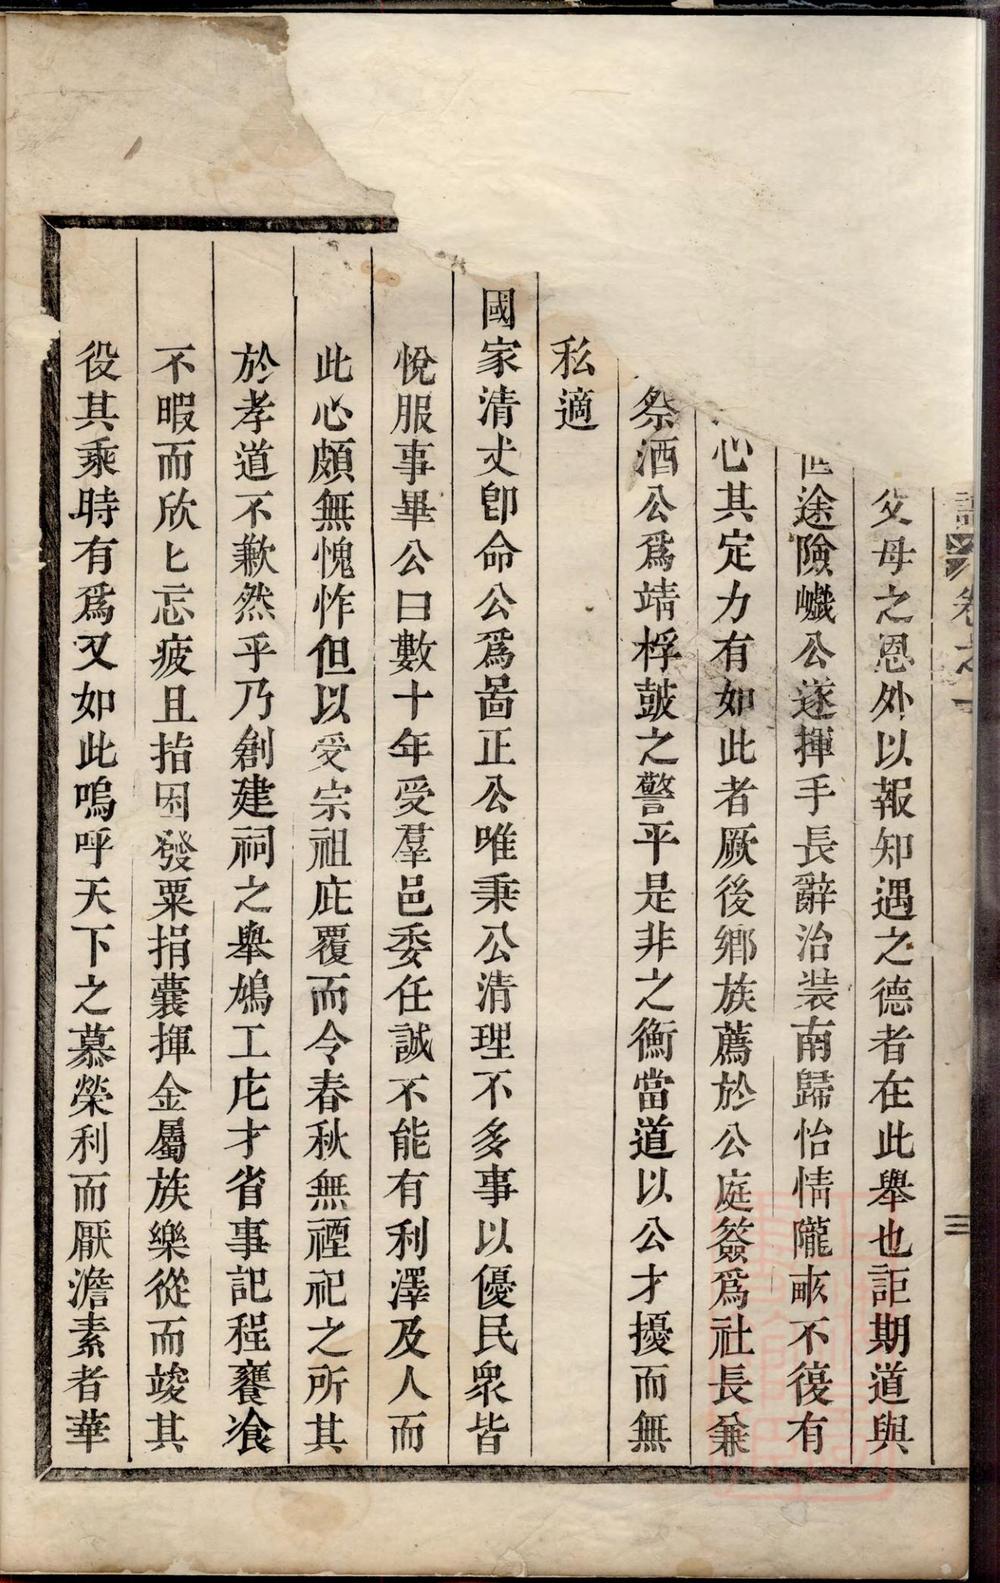 卷之一
三
父母之恩外以報知遇之德者在此舉也詎期道與
途險巇公遂揮手長辭治装南歸怡情隴畝不復有
心其定力有如此者厥後鄉族薦於公庭簽爲社長兼
祭酒公爲靖桴鼓之警平是非之衡當道以公才擾而無
私適
國家清丈卽命公爲啚正公唯秉公清理不多事以優民衆皆
悅服事畢公曰數十年受羣邑委任誠不能有利澤及人而
此心頗無愧怍但以受宗祖庇覆而令春秋無禋祀之所其
於孝道不歉然乎乃創建祠之舉鳩工庀才省事記程饔飡
不暇而欣匕忘疲且指囷發粟捐囊揮金屬族樂從而竣其
役其乘時有爲又如此嗚呼天下之慕榮利而厭澹素者華